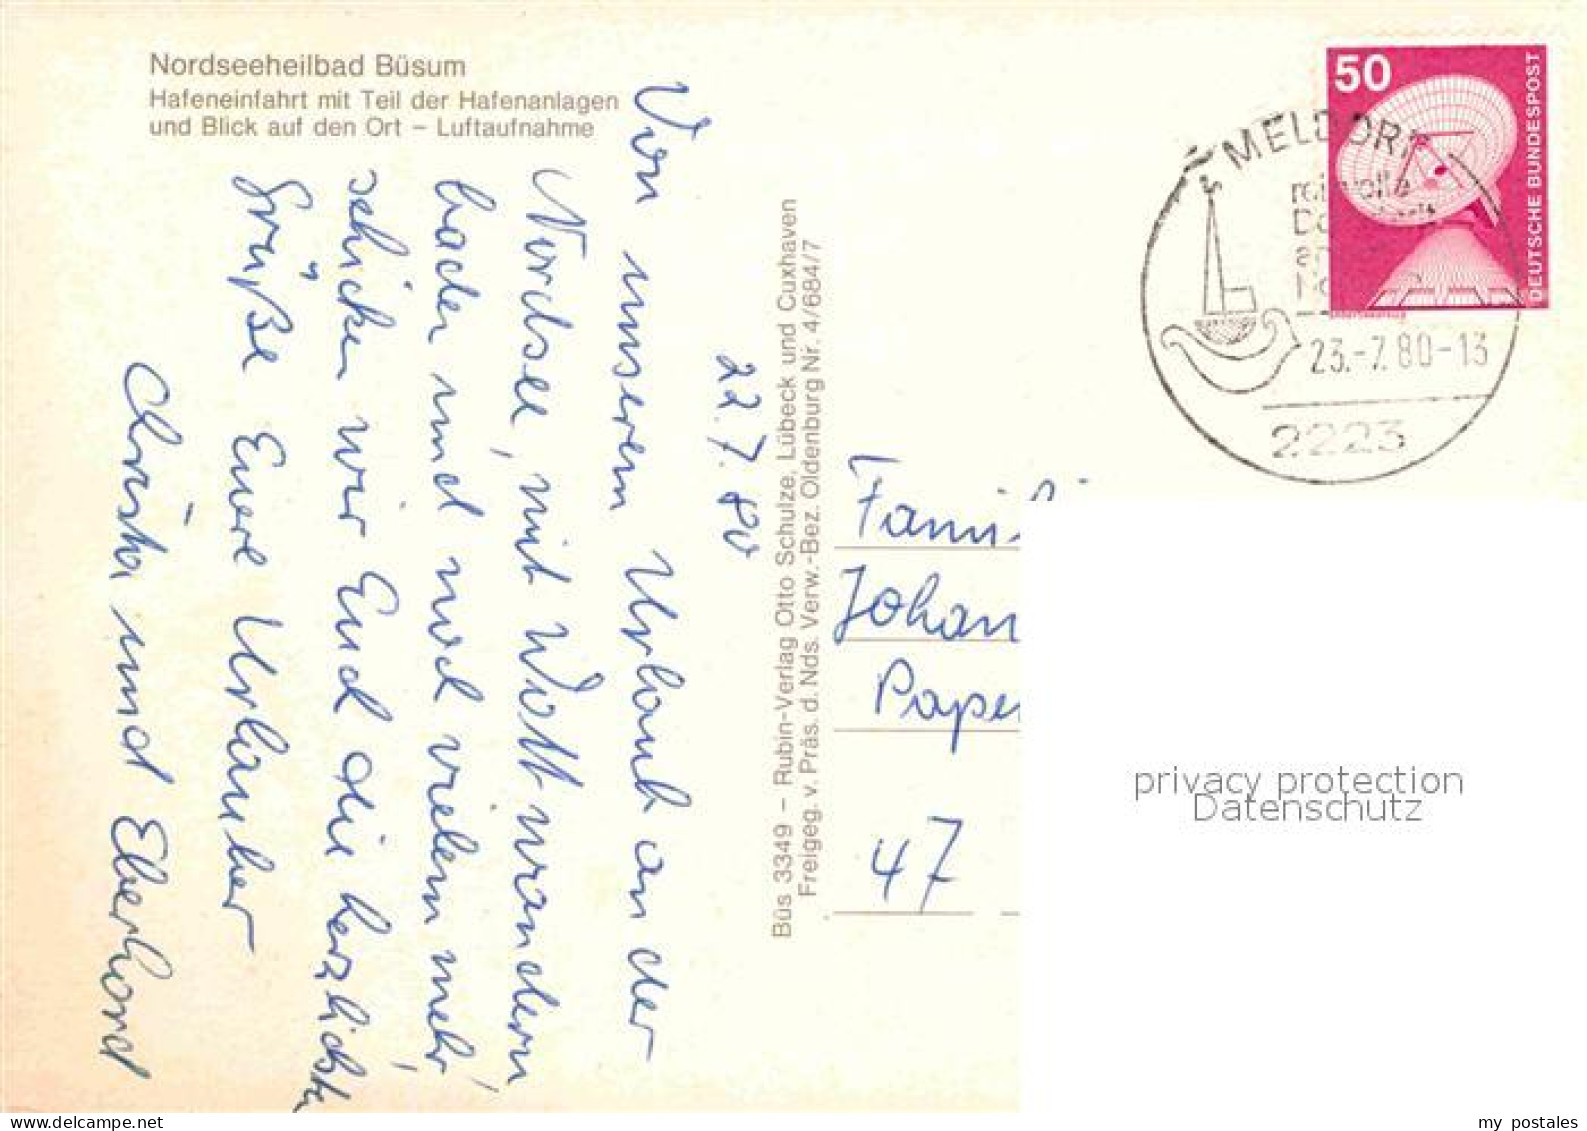 Nordseeheilbad Büsum
Hafeneinfahrt mit Teil der Hafenanlagen
und Blick auf den Ort – Luftaufnahme
22.7.80
Von unserem Urlaub an der
Nordsee, mit Watt wandern,
baden und noch vielem mehr,
schicken wir Euch die herzlichsten
Grüße Eure Urlauber
Christa und Eberhard
Büs 3349 – Rubin-Verlag Otto Schulze, Lübeck und Cuxhaven
Freigeg. v. Präs. d. Nds. Verw.-Bez. Oldenburg Nr. 4/684/7
50
DEUTSCHE BUNDESPOST
MELDORF
23.-7.80-13
2223
Famil
Johan
Pape
47
privacy protection
Datenschutz
www.delcampe.net
my_postales